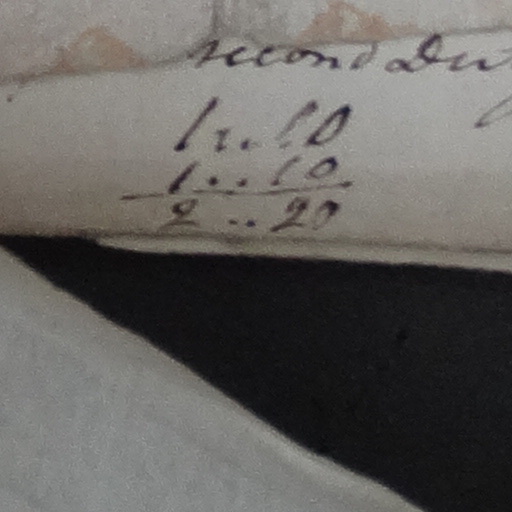 second
1...10
1...10
2...20